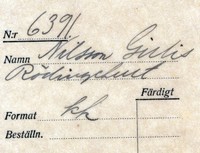 N:r 6391
Namn Nilsson Gulis
Rödingehult
Färdigt
Format kh
Beställn.